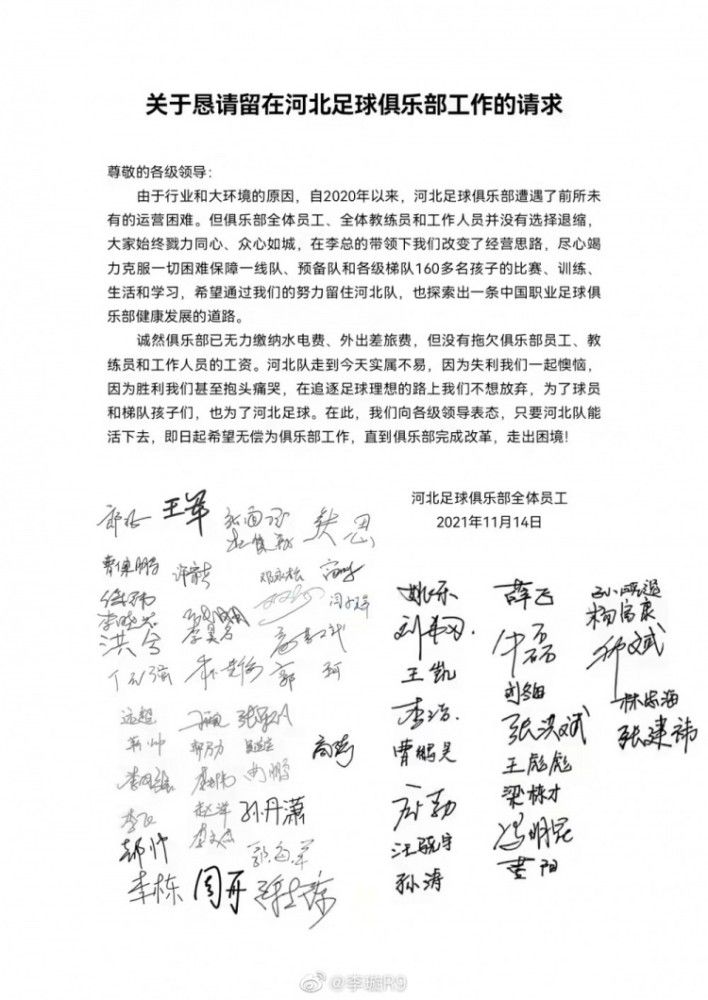 关于恳请留在河北足球俱乐部工作的请求
尊敬的各级领导：
由于行业和大环境的原因，自2020年以来，河北足球俱乐部遭遇了前所未
有的运营困难。但俱乐部全体员工、全体教练员和工作人员并没有选择退缩，
大家始终戮力同心、众心如城，在李总的带领下我们改变了经营思路，尽心竭
力克服一切困难保障一线队、预备队和各级梯队160多名孩子的比赛、训练、
生活和学习，希望通过我们的努力留住河北队，也探索出一条中国职业足球俱
乐部健康发展的道路。
诚然俱乐部已无力缴纳水电费、外出差旅费，但没有拖欠俱乐部员工、教
练员和工作人员的工资。河北队走到今天实属不易，因为失利我们一起懊恼，
因为胜利我们甚至抱头痛哭，在追逐足球理想的路上我们不想放弃，为了球员
和梯队孩子们，也为了河北足球。在此，我们向各级领导表态，只要河北队能
活下去，即日起希望无偿为俱乐部工作，直到俱乐部完成改革，走出困境！
河北足球俱乐部全体员工
2021年11月14日
王军
曹鹏
洪兮
郭珂
远超
孙丹潇
李栋 周冉
姚乐 薛飞
王凯
李浩
张洪斌 张建祎
曹鹏昊
王彪彪
梁栋才
汪晓宇 冯明昆
孙涛 董阳
杨富康
林志海
@李璇R9